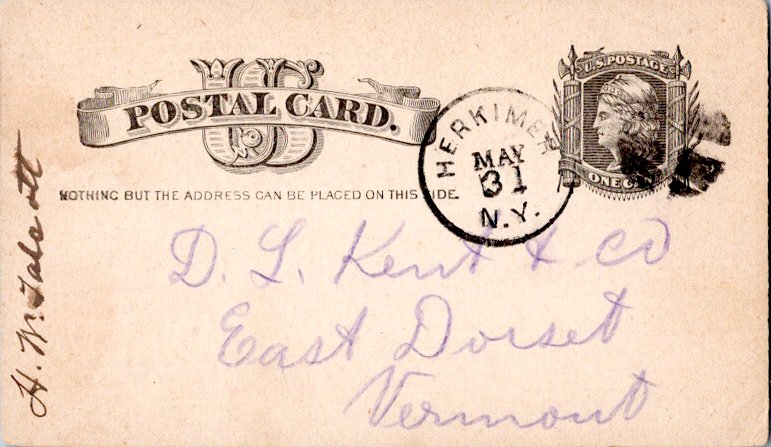 US
POSTAL CARD.
U.S. POSTAGE
ONE C
HERKIMER
MAY
31
N.Y.
NOTHING BUT THE ADDRESS CAN BE PLACED ON THIS SIDE.
D. L. Kent & Co
East Dorset
Vermont
H. W.